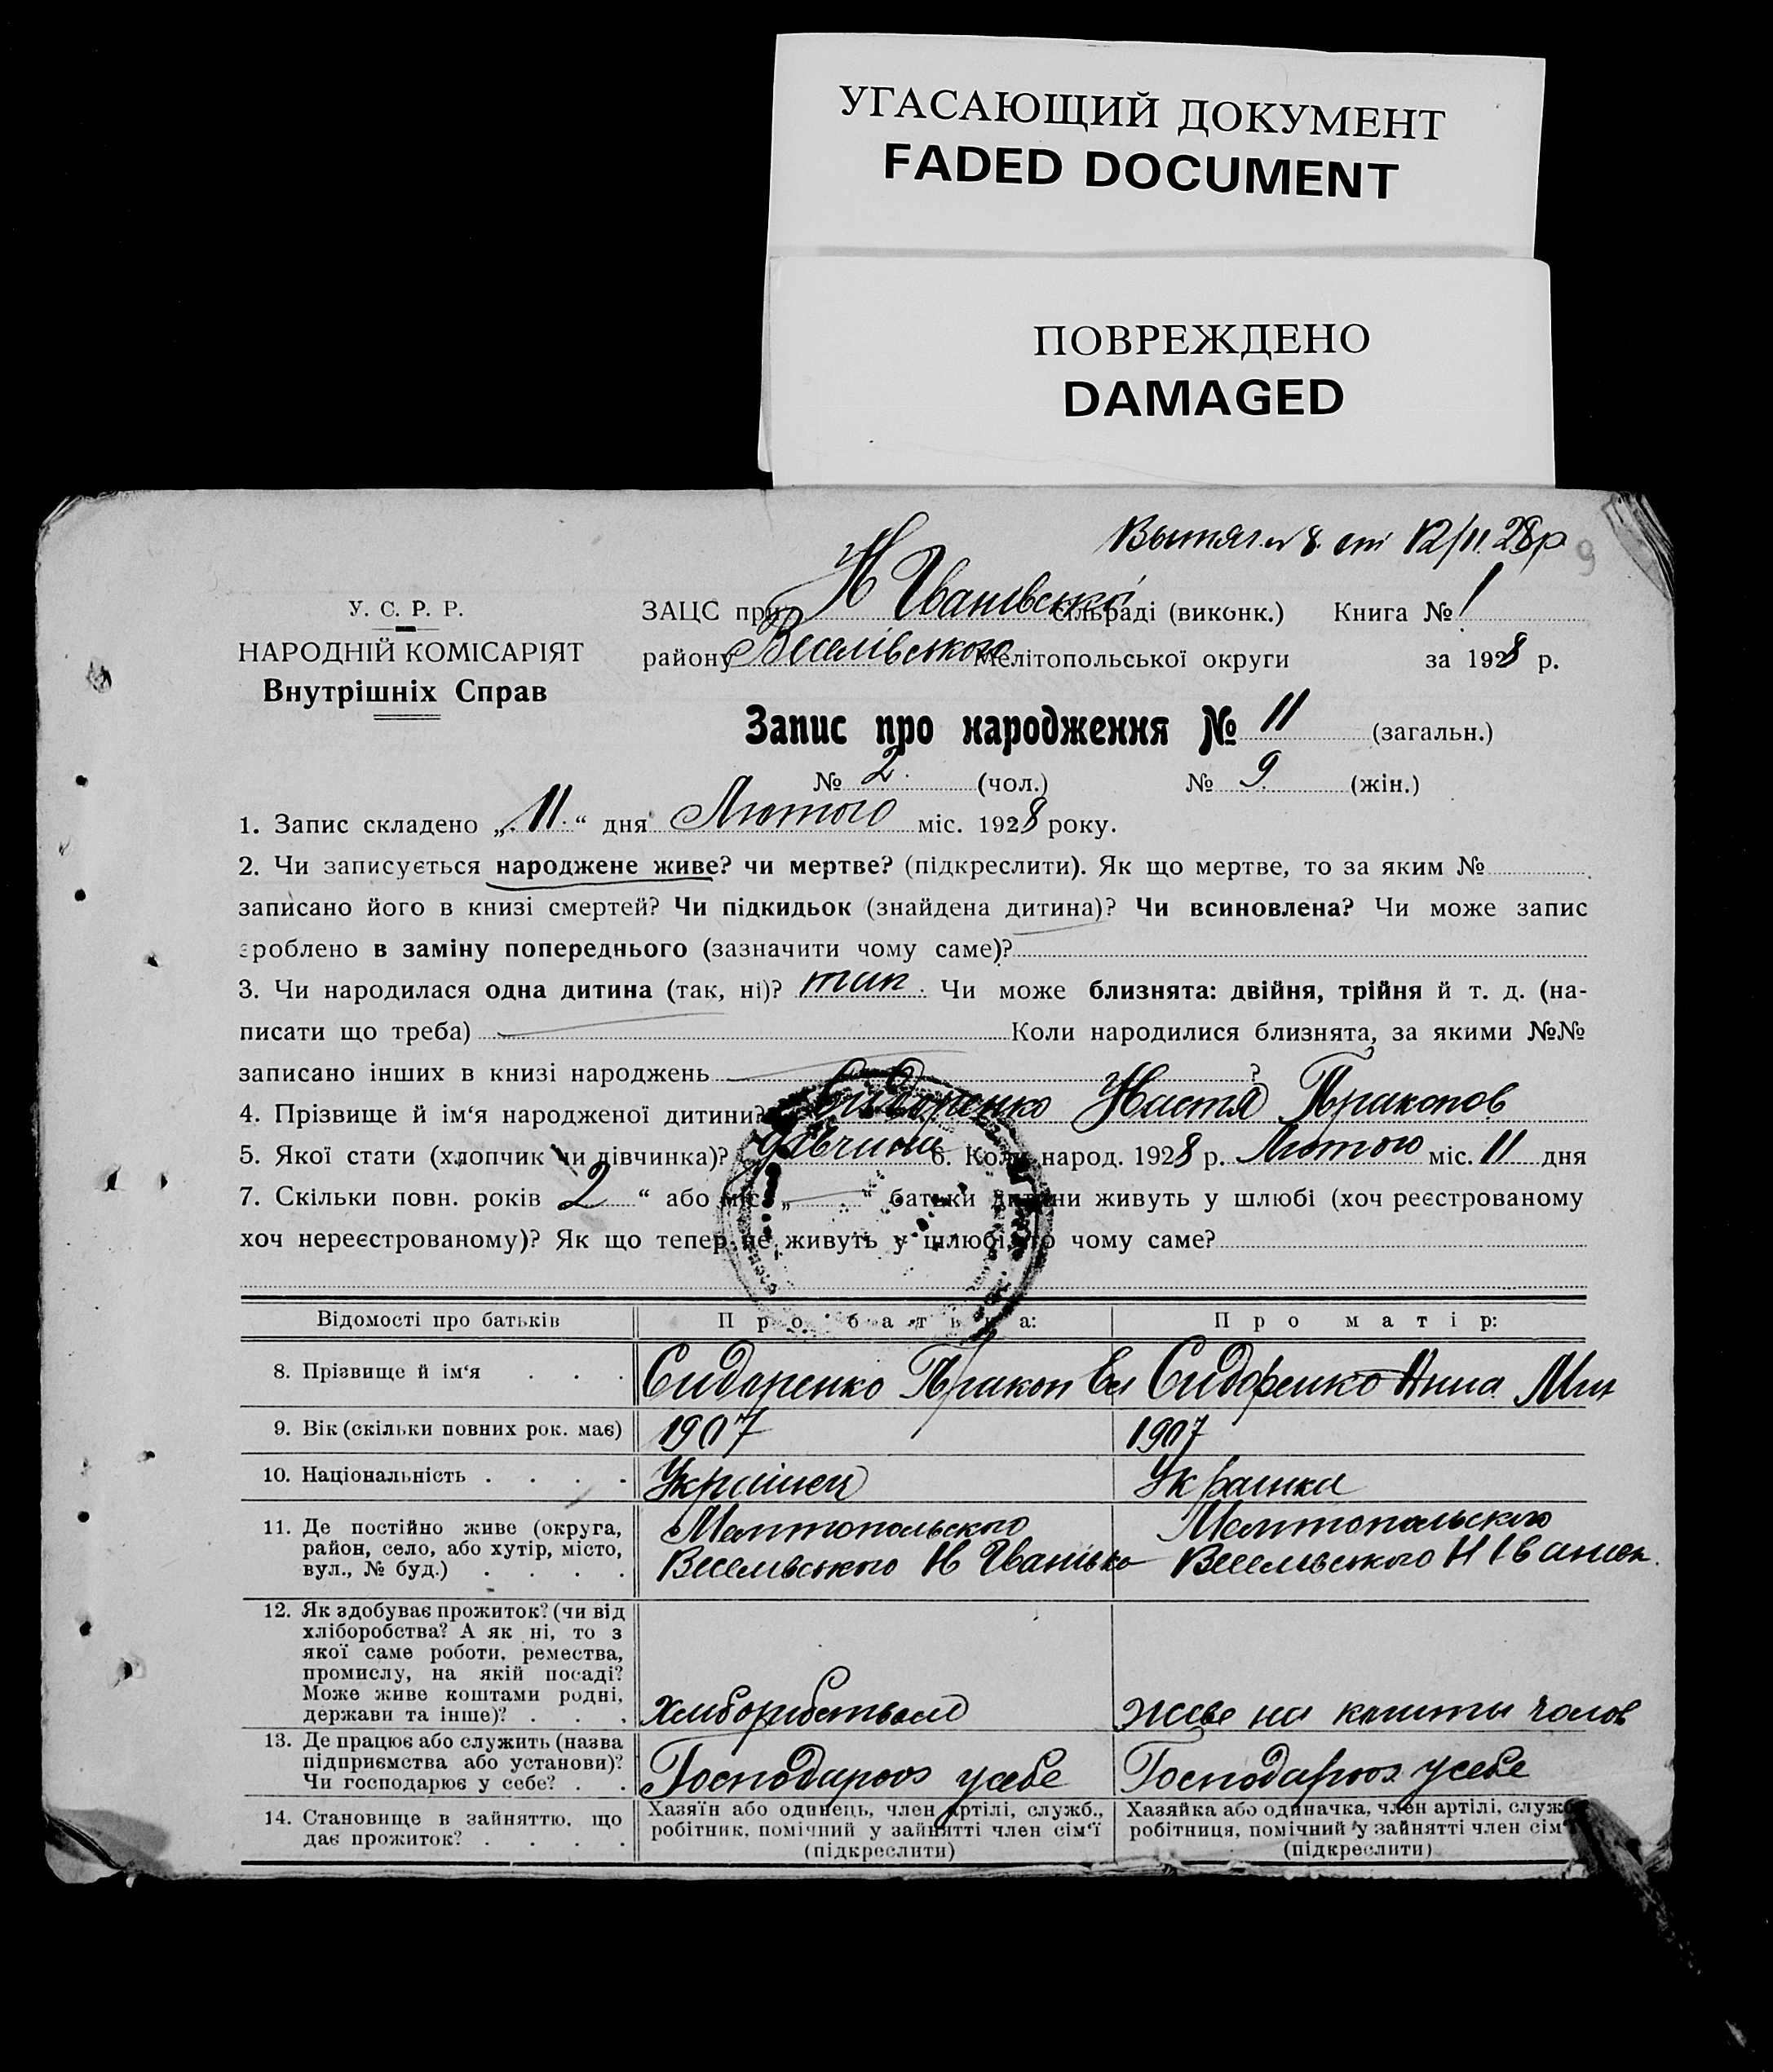 УГАСАЮЩИЙ ДОКУМЕНТ
FADED DOCUMENT
ПОВРЕЖДЕНО
DAMAGED
12/II 28 р
9
У. С. Р. Р.
НАРОДНІЙ КОМІСАРІЯТ
Внутрішніх Справ
ЗАЦС при Н Іванівській сільраді (виконк.) Книга № 1
району Веселівського Мелітопольської округи за 1928 р.
Запис про народження № 11 (загальн.)
№ 2 (чол.) № 9 (жін.)
1. Запис складено „11“ дня Лютого міс. 1928 року.
2. Чи записується народжене живе? чи мертве? (підкреслити). Як що мертве, то за яким №
записано його в книзі смертей? Чи підкидьок (знайдена дитина)? Чи всиновлена? Чи може запис
зроблено в заміну попереднього (зазначити чому саме)?
3. Чи народилася одна дитина (так, ні)? так. Чи може близнята: двійня, трійня й т. д. (на-
писати що треба) Коли народилися близнята, за якими №№
записано інших в книзі народжень ?
4. Прізвище й ім‘я народженої дитини? Сидоренко Настя Пракопов
5. Якої стати (хлопчик чи дівчинка)? дівчина 6. Коли народ. 1928 р. Лютого міс. 11 дня
7. Скільки повн. років 2 “ або міс. „ “ батьки дитини живуть у шлюбі (хоч реєстрованому
хоч нереєстрованому)? Як що тепер не живуть у шлюбі, то чому саме?
Відомості про батьків Про батька: Про матір:
8. Прізвище й ім‘я Сидоренко Пракоп Сидоренко Анна
9. Вік (скільки повних рок. має) 1907 1907
10. Національність Українец Украінка
11. Де постійно живе (округа, Мелітопольского Мелітопольского
район, село, або хутір, місто, Веселівського Н Іванівка Веселівського Н Іванівк.
вул., № буд.)
12. Як здобуває прожиток? (чи від
хліборобства? А як ні, то з
якої саме роботи, ремества,
промислу, на якій посаді?
Може живе коштами родні,
держави та інше)? живе на кошти чолов
13. Де працює або служить (назва
підприємства або установи)?
Чи господарює у себе? Господарює усебе Господарює усебе
14. Становище в зайняттю, що Хазяїн або одинець, член артілі, служб., Хазяйка або одиначка, член артілі, служб
дає прожиток? робітник, помічний у зайнятті член сім‘ї робітниця, помічний у зайнятті член сім‘
(підкреслити) (підкреслити)